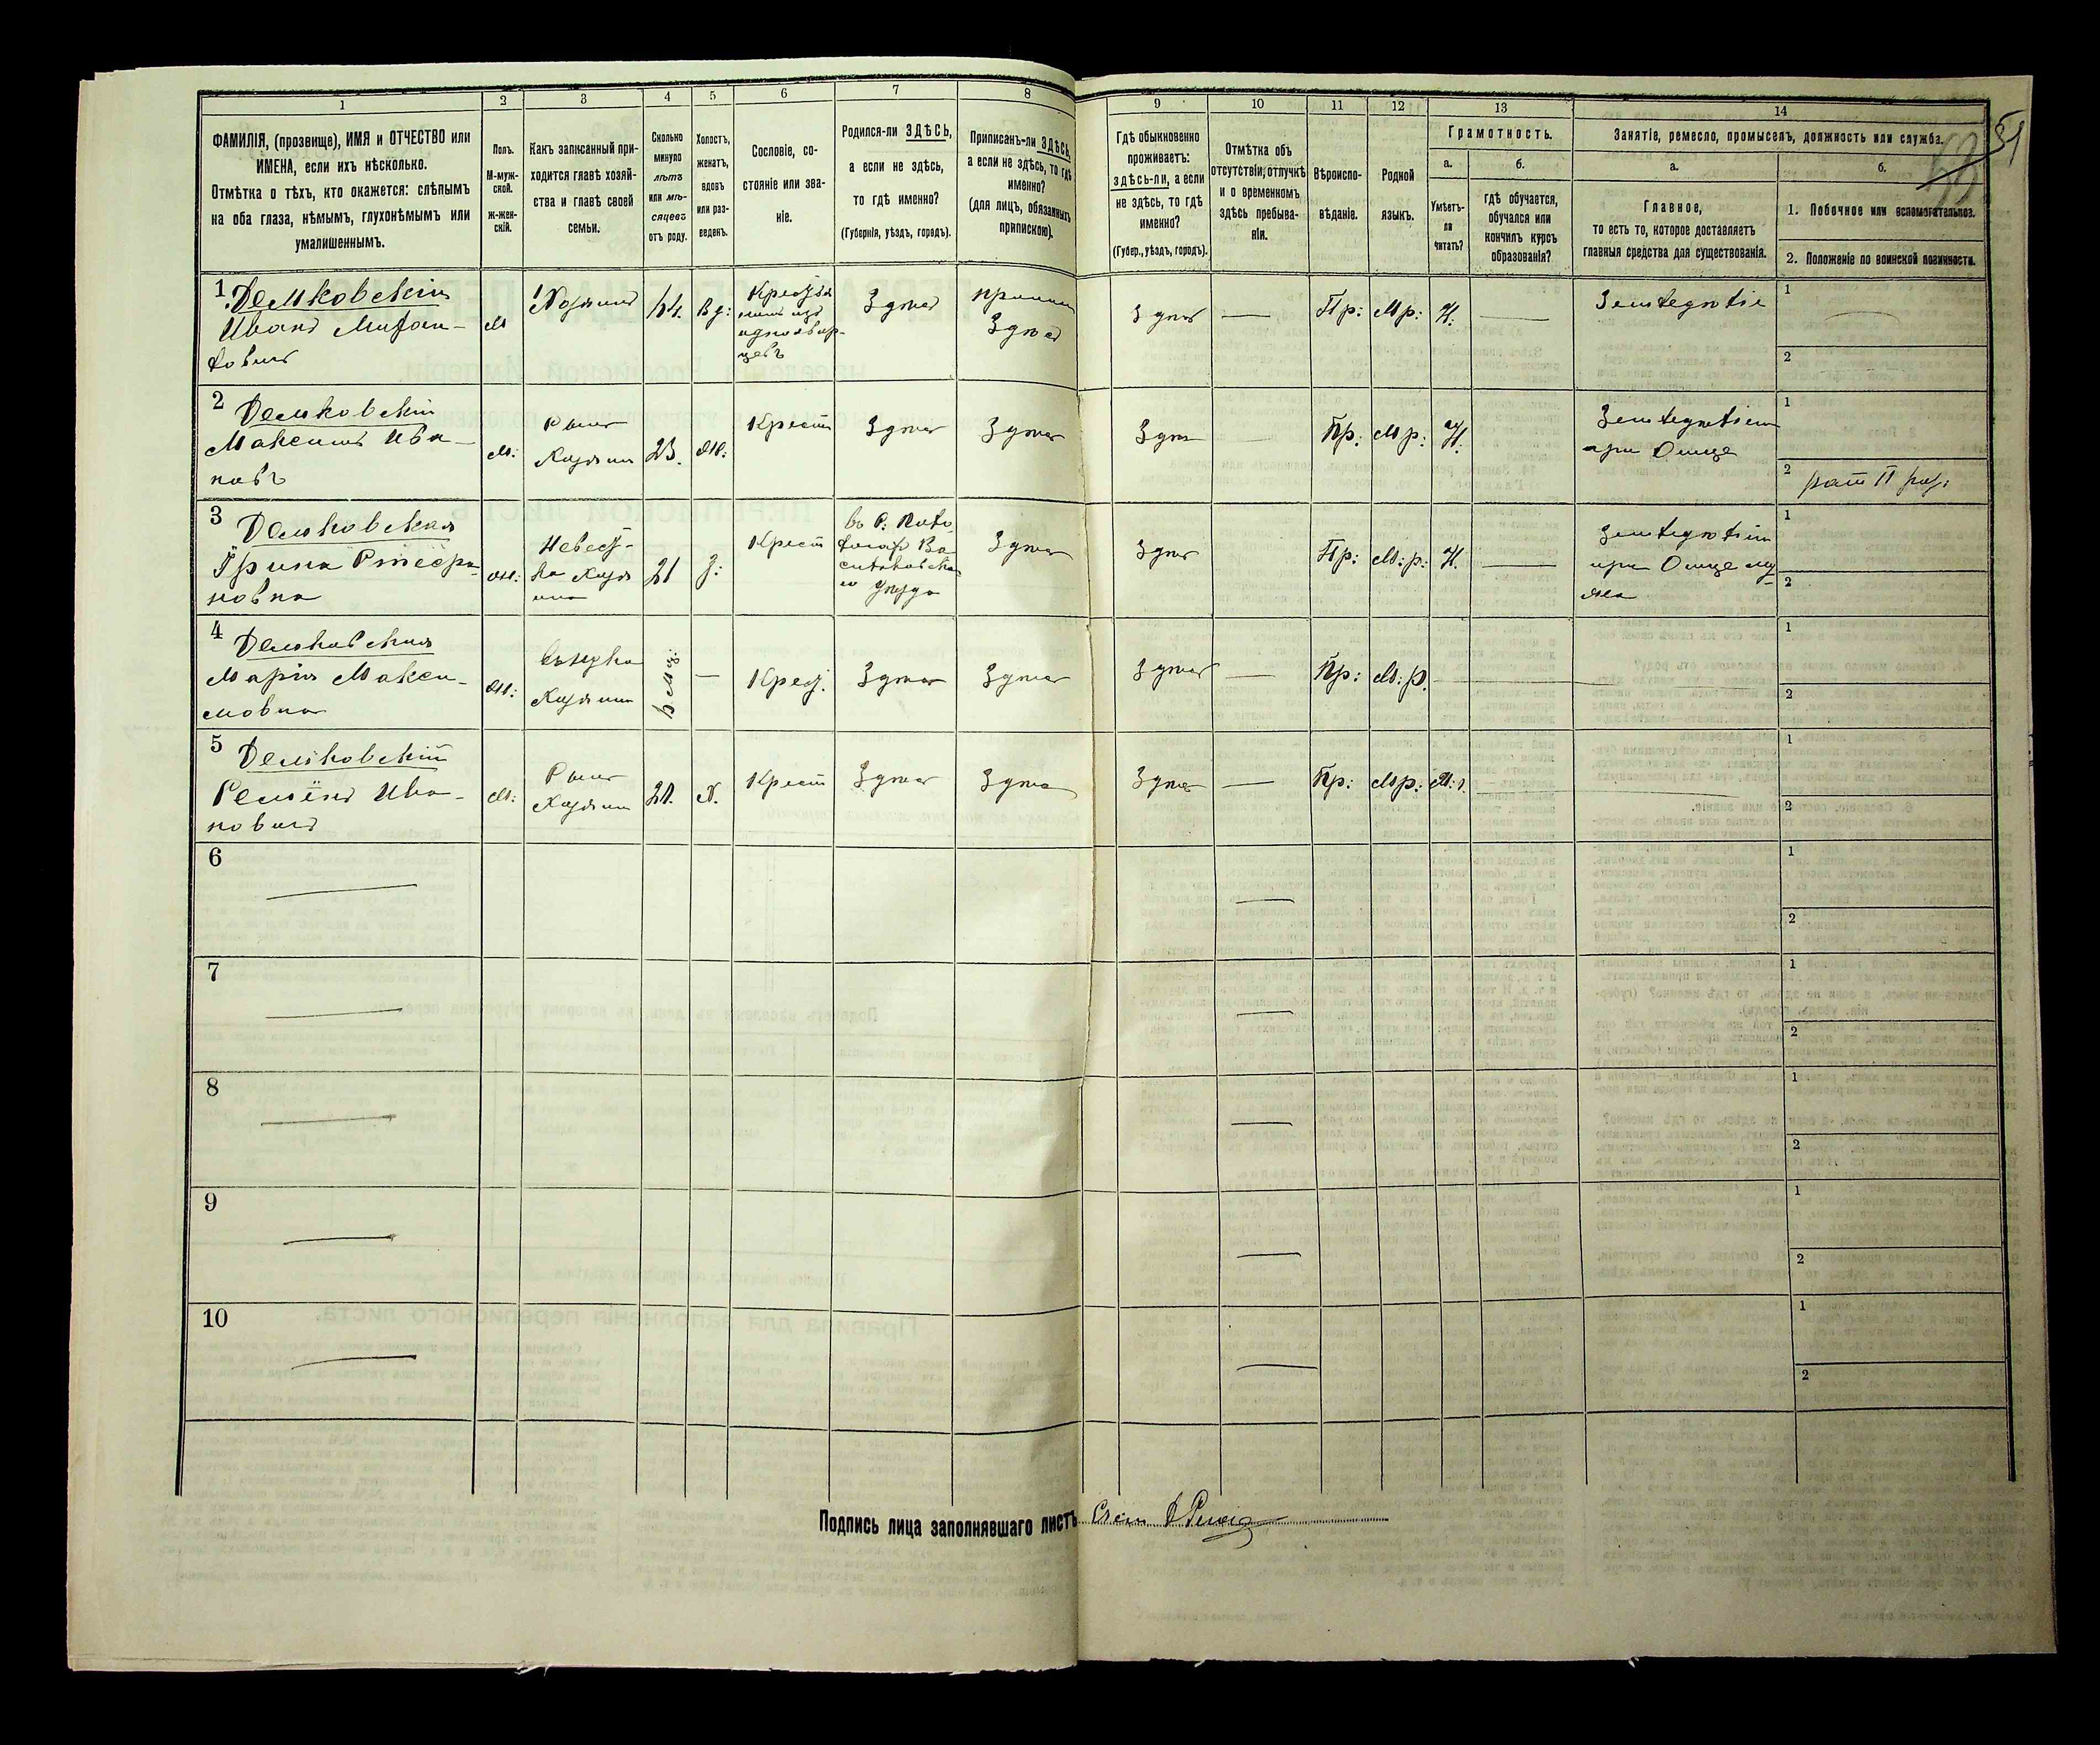 1
2
3
4
5
6
7
8
9
10
11
12
13
14
ФАМИЛІЯ, (прозвище), ИМЯ и ОТЧЕСТВО или
ИМЕНА, если ихъ нѣсколько.
Отмѣтка о тѣхъ, кто окажется: слѣпымъ
на оба глаза, нѣмымъ, глухонѣмымъ или
умалишеннымъ.
Полъ.
М-муж-
ской.
ж-жен-
скій.
Какъ записанный при-
ходится главѣ хозяй-
ства и главѣ своей
семьи.
Сколько
минуло
лѣтъ
или мѣ-
сяцевъ
отъ роду.
Холостъ,
женатъ,
вдовъ
или раз-
веденъ.
Сословіе, со-
стояніе или зва-
ніе.
Родился-ли ЗДѢСЬ,
а если не здѣсь,
то гдѣ именно?
(Губернія, уѣздъ, городъ).
Приписанъ-ли ЗДѢСЬ,
а если не здѣсь, то гдѣ
именно?
(для лицъ, обязанныхъ
припискою).
Гдѣ обыкновенно
проживаетъ:
здѣсь-ли, а если
не здѣсь, то гдѣ
именно?
(Губер., уѣздъ, городъ).
Отмѣтка объ
отсутствіи, отлучкѣ
и о временномъ
здѣсь пребыва-
ніи.
Вѣроиспо-
вѣданіе.
Родной
языкъ.
Грамотность.
а.
Умѣетъ-
ли
читать?
б.
гдѣ обучается,
обучался или
кончилъ курсъ
образованія?
Занятіе, ремесло, промыселъ, должность или служба.
51
а.
Главное,
то есть то, которое доставляетъ
главныя средства для существованія.
б.
1. Побочное или вспомогательное.
2. Положеніе по воинской повинности.
1 Демковскій
Иванъ
м
Хозяинъ
Вд:
Здѣсь
Здѣсь
Здѣсь
Пр:
Мр:
Н.
Земледѣліе
1
2
2 Демковскій
Максимъ Ива-
новъ
м:
Сынъ
Хозяина
23.
Ж:
Крест
Здѣсь
Здѣсь
Здѣсь
Пр:
Мр:
Н.
Земледѣліем
при Отцѣ
1
2 рат II раз:
3 Демковская
новна
ж:
Невест-
ка Хозя
ина
21
З:
Крест
Здѣсь
Здѣсь
Пр:
М:р:
Н.
Земледѣліем
при Отцѣ му
жа
1
2
4 Демковская
Марія Макси-
мовна
ж:
Внучка
Хозяина
Крест.
Здѣсь
Здѣсь
Здѣсь
Пр:
М:р.
1
2
5 Демковскій
Семёнъ Ива-
новичъ
м:
Сынъ
Хозяина
Х.
Крест
Здѣсь
Здѣсь
Здѣсь
Пр:
Мр:
1
2
6
1
2
7
1
2
8
1
2
9
1
2
10
1
2
Подпись лица заполнявшаго листъ